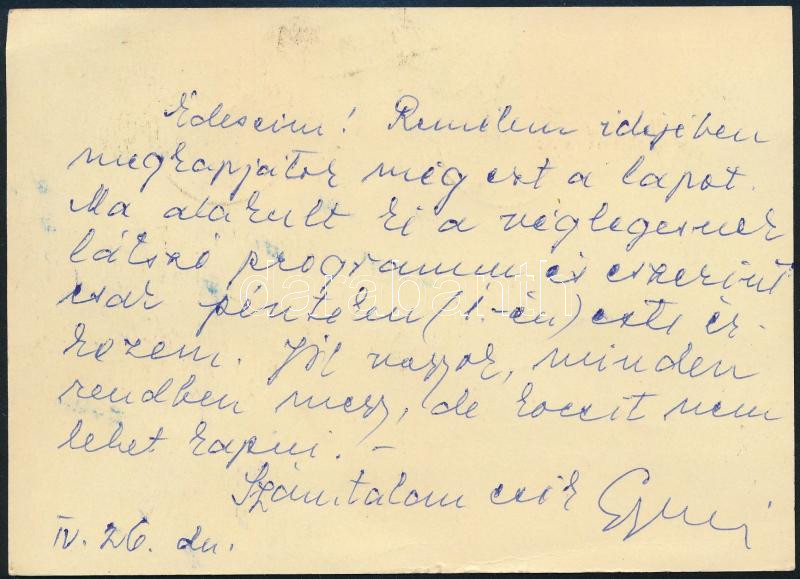 Édeseim! Remélem idejében
megkapjátok még ezt a lapot.
Ma alakult ki a véglegesnek
látszó programm és eszerint
csak pénteken (1.-én) este ér-
kezem. Jól vagyok, minden
rendben megy, de kocsit nem
lehet kapni. –
Számtalan csók
IV. 26. du.
darabanth